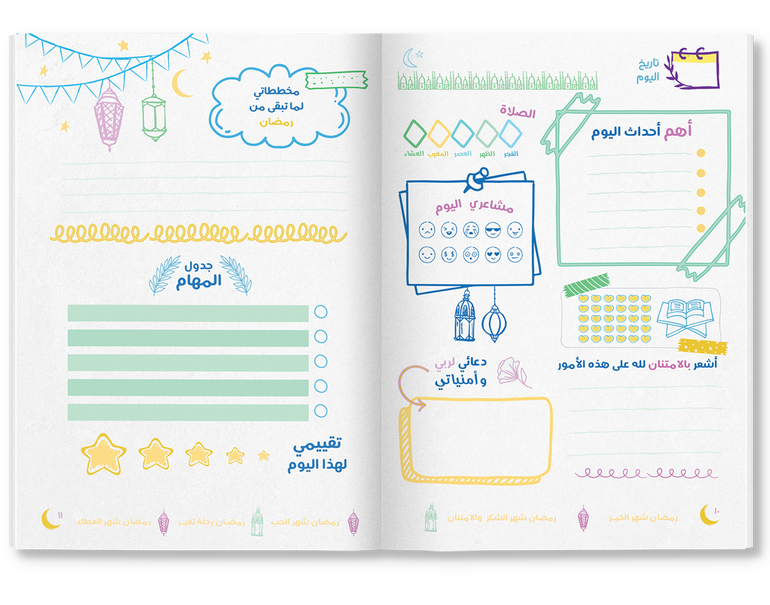 تاريخ
اليوم
أهم أحداث اليوم
الصلاة
الفجر
الظهر
العصر
المغرب
العشاء
مشاعري اليوم
أشعر بالامتنان لله على هذه الأمور
دعائي لربي
وأمنياتي
١٠
رمضان شهر الخير
رمضان شهر الشكر والامتنان
مخططاتي
لما تبقى من
رمضان
جدول
المهام
تقييمي
لهذا اليوم
رمضان شهر الحب
رمضان رحلة تغيير
رمضان شهر العطاء
١١